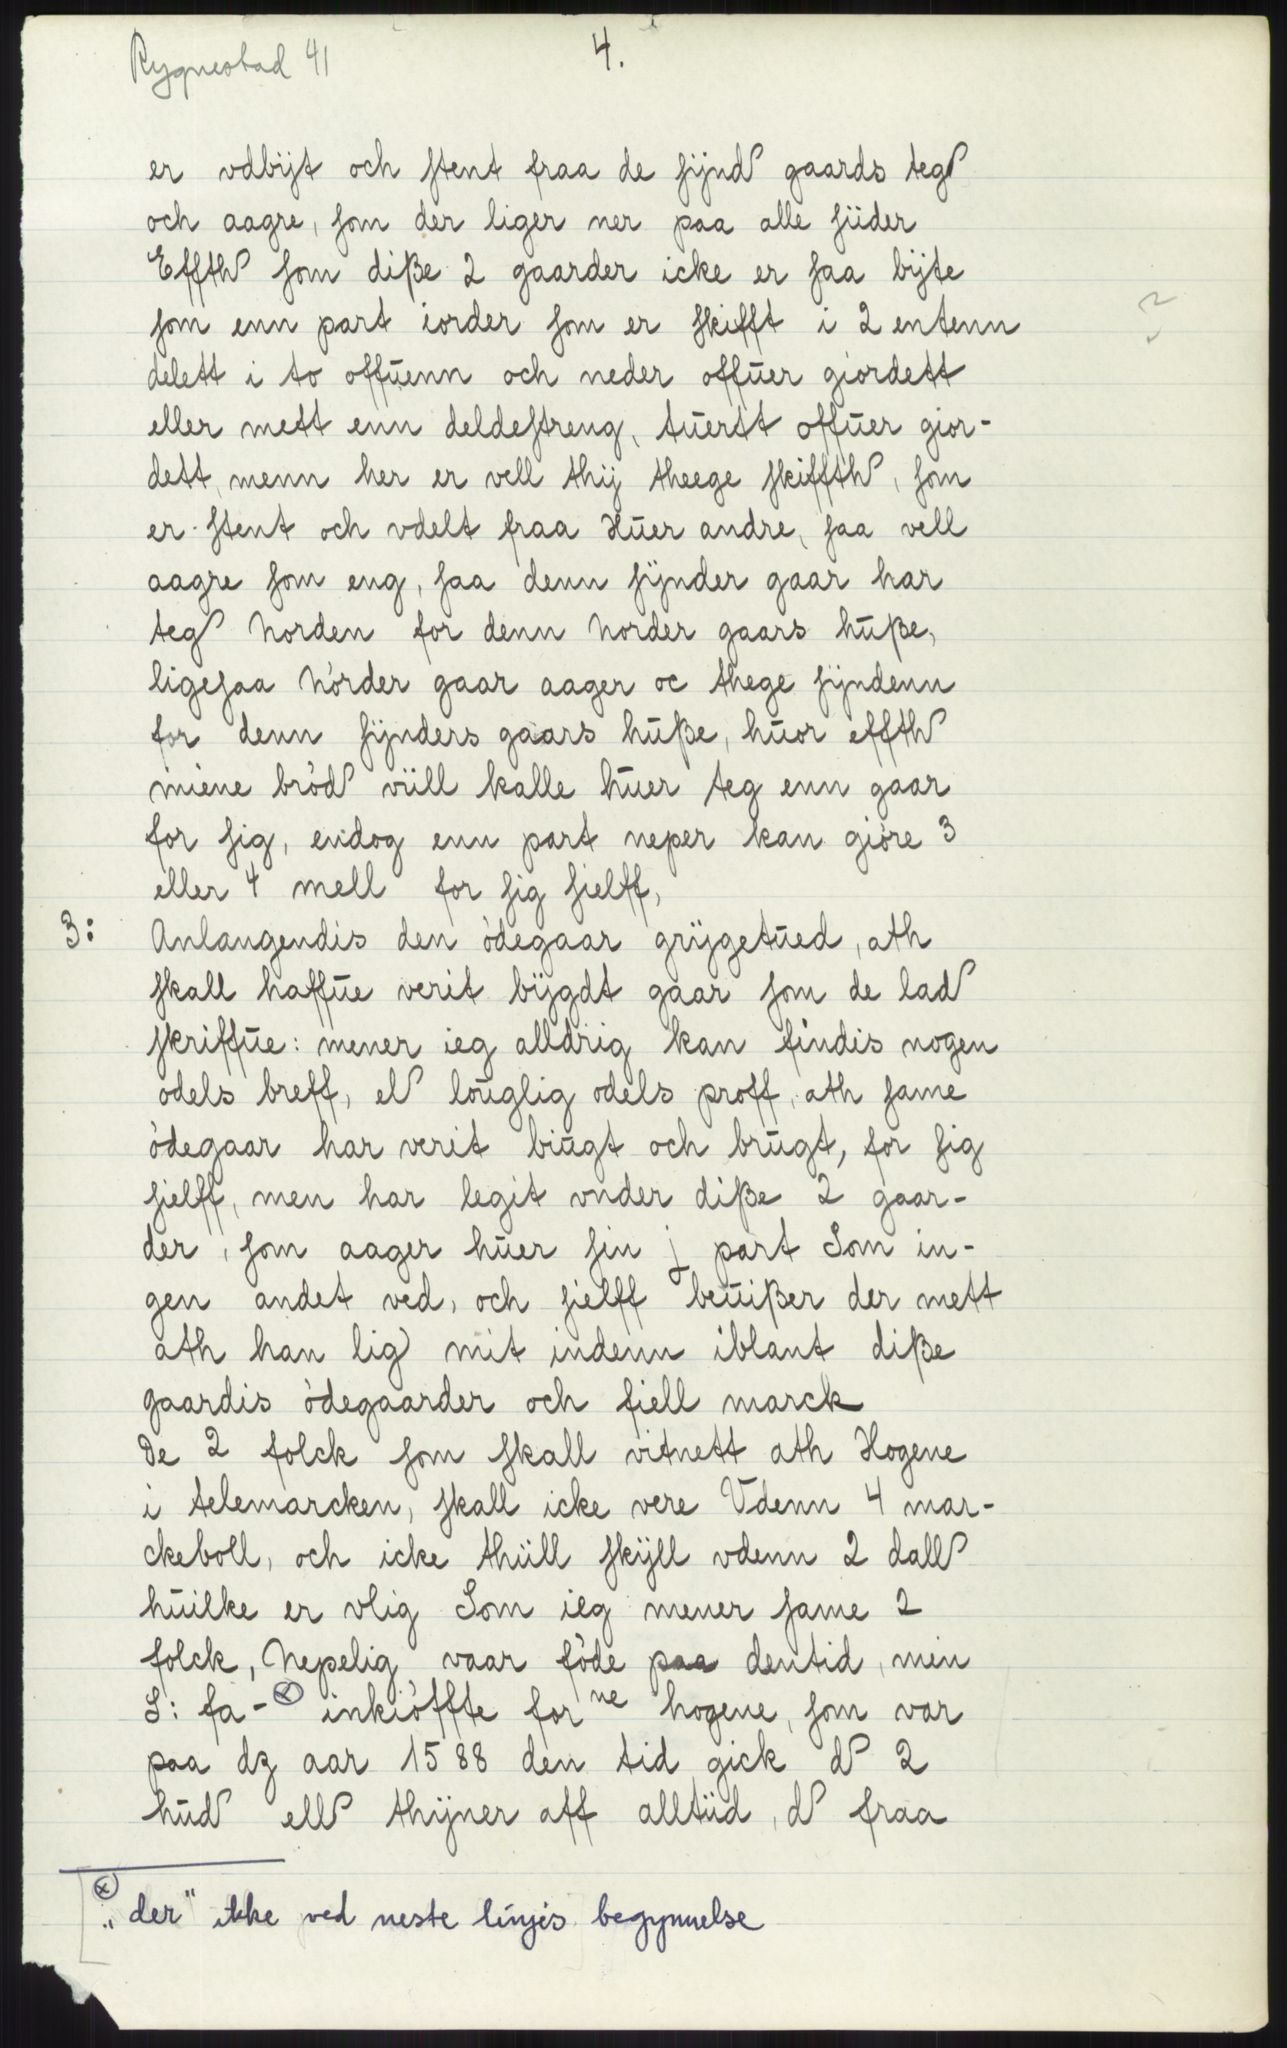 Rygnestad 41
4.
er vdbijt och stent fraa de sijnd gaards teg
och aagre, som der liger ner paa alle süder
Effth som diße 2 gaarder icke er saa bijte
som enn part iorder som er skifft i 2 entenn
delett i to offūenn och neder offūer giordett
eller mett enn deldestreng, tūertt offūer gior-
dett, menn her er vell thij theege skiffth, som
er stent och vdelt fraa Hūer andre, saa vell
aagre som eng, saa denn sijnder gaar har
teg Norden for denn Norder gaars hūße,
ligesaa Nòrder gaar aager oc thege sijndenn
for denn sijnders gaars hūße, hūor effth
miene bròd vüll kalle hūer teg enn gaar
for sig, endog enn part neper kan giòre 3
eller 4 mell for sig sielff,
3: Anlangendis den òdegaar grijgetūed, ath
skall haffūe verit bijgdt gaar som de lad
skriffūe: mener ieg alldrig kan findis nogen
odels breff, el loūglig odels proff, ath same
òdegaar har verit biūgt och brūgt, for sig
sielff, men har legit vnder diße 2 gaar-
der, som aager hūer sin j part Som in-
gen andet ved, och sielff beūißer der mett
ath han lig mit indenn iblant diße
gaardis òdegaarder och fiell marck
De 2 folck som skall vitnett ath Hogene
i telemarcken, skall icke vere Vdenn 4 mar-
ckeboll, och icke thüll skijll vdenn 2 dall
hūilke er vlig Som ieg mener same 2
folck, Nepelig vaar fòde paa dentid, min
S: fa-ⓧ inkiòffte for ne hogene, som var
paa dz aar 1588 den tid gick d 2
hūd ell thijner aff alltüd, d fraa
ⓧ
„der" ikke ved neste linjes begynnelse